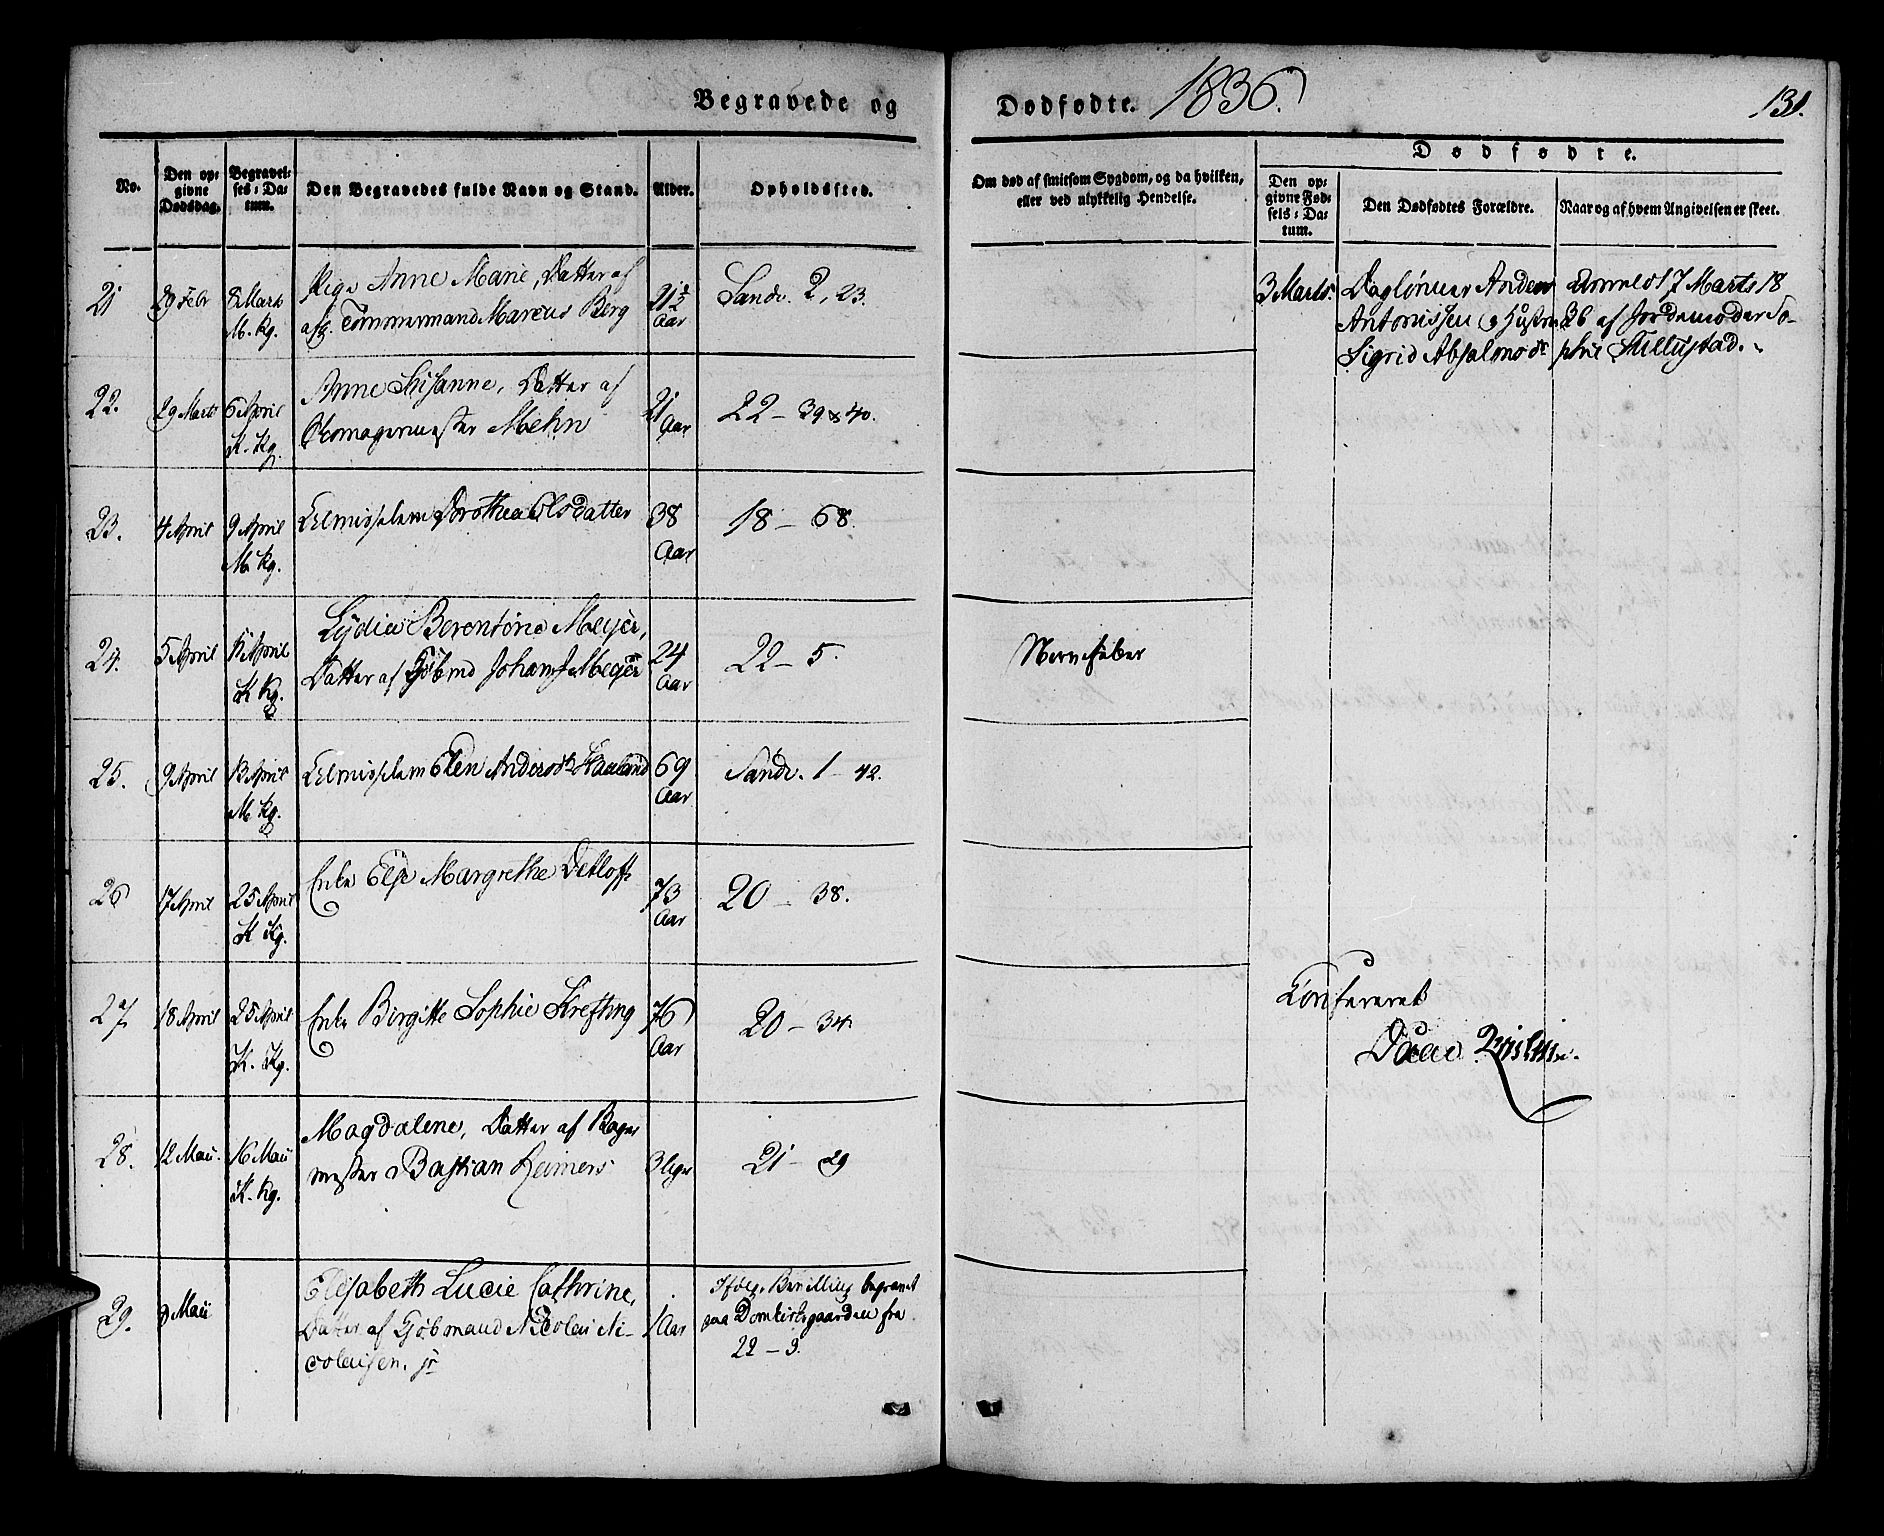 Begravede og
Dødfødte. 1836.
131.
No.
Den op-
givne
Dødsdag.
Begravel-
ses-Da-
tum.
Den Begravedes fulde Navn og Stand.
Alder.
Opholdssted.
Om død af smitsom Sygdom, og da hvilken,
eller ved ulykkelig Hendelse.
Dødfødte.
Den op-
givne Fød-
sels-Da-
tum.
Den Dødfødtes Forældre.
Naar og af hvem Angivelsen er skeet.
21
29 Febr
8 Marts
M. Kg.
Pige Anne Marie, Datter af
afg. Tømmermand Marcus Berg
21½
Aar
Sandv. 2, 23.
22.
29 Marts
6 April
K. Kg.
Anne Susanne, Datter af
Skomagermester Mehn
21
Aar
22 – 39 & 40.
23.
4 April
9 April
M. Kg.
Elmisselem Dorothea Olsdatter
38
Aar
18 – 68.
24.
5 April
April
K Kg.
Lydia Berentine Meyer,
Datter af Kjøbmd Johan J Meyer
24
Aar
22 – 5.
Nervefeber
25.
9 April
13 April
M Kg.
Elmisselem Elen Andersdt Haaland
69
Aar
Sandv. 1 – 42.
26
17 April
25 April
K Kg.
Enke Else Margrethe Detloff
73
Aar
20 – 38.
27
18 April
25 April
K. Kg.
Enke Birgitte Sophie Krefting
76
Aar
20 – 34.
28.
12 Maii.
16 Maii
K. Kg.
Magdalene, Datter af Bager
mester Bastian Reimers
3 Uger
21 – 29
29.
9 Maii
Elisabeth Lucie Cathrine,
Datter af Kjøbmand Nicolai Ni-
colaisen. jr
1 Aar
Ifølg. Bevilling begravet
paa Domkirkegaarden fra
22 – 3.
3 Marts.
Daglønner Anders
Antonissen og Hustru
Sigrid Absalonsdt
Anmeldt 17 Marts 18
36 af Jordemoder So-
phie
Confereret